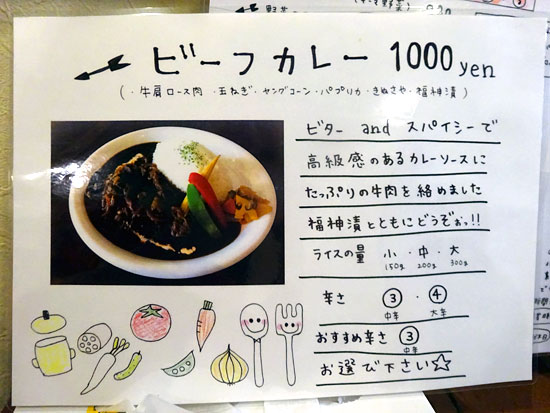 ビーフカレー 1000yen
(・牛肩ロース肉・玉ねぎ・ヤングコーン・パプリカ・きぬさや・福神漬)
ビター and スパイシーで
高級感のあるカレーソースに
たっぷりの牛肉を絡めました
福神漬とともにどうぞぉっ!!
ライスの量 小・中・大
150g 200g 300g
辛さ ③・④
中辛 大辛
おすすめ辛さ ③
中辛
お選び下さい☆